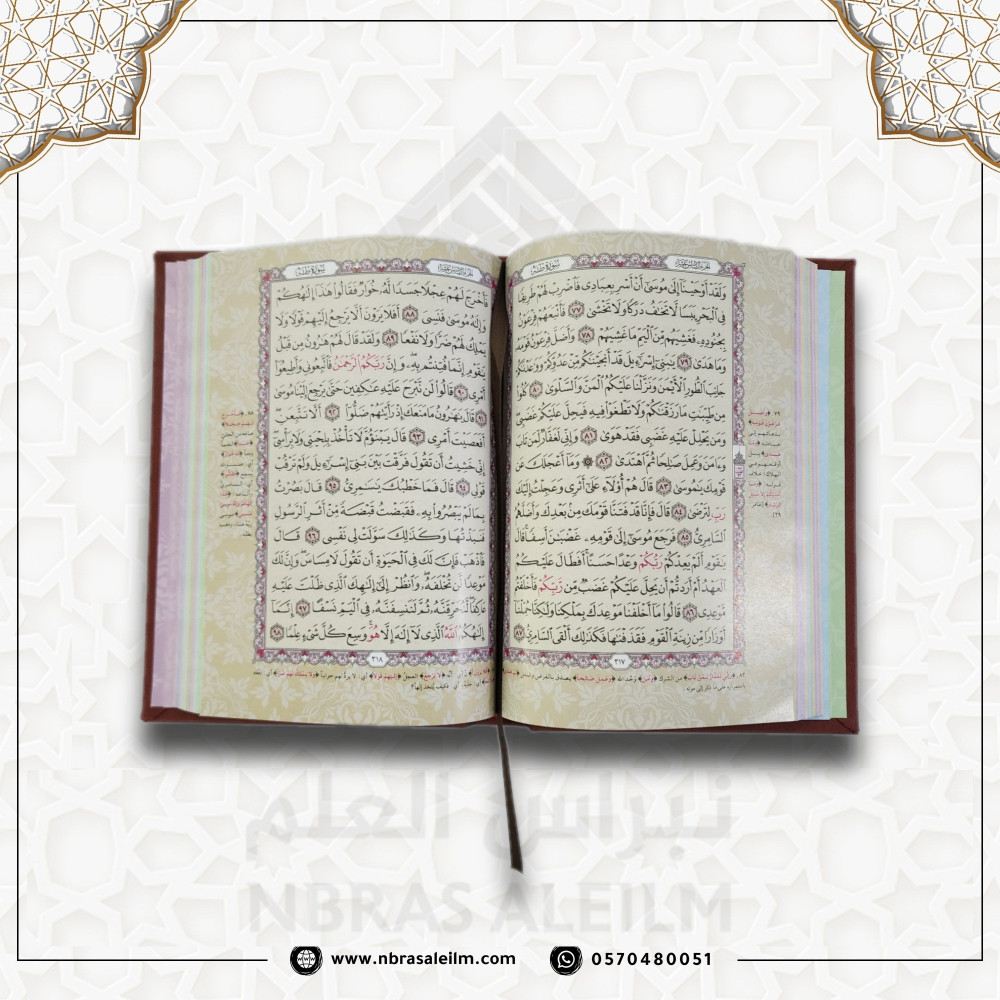 سورة طه
الجزء السادس عشر
وَلَقَدْ أَوْحَيْنَا إِلَىٰ مُوسَىٰ أَنْ أَسْرِ بِعِبَادِي فَاضْرِبْ لَهُمْ طَرِيقًا
فِي الْبَحْرِ يَبَسًا لَّا تَخَافُ دَرَكًا وَلَا تَخْشَىٰ ٧٧ فَأَتْبَعَهُمْ فِرْعَوْنُ
بِجُنُودِهِ فَغَشِيَهُم مِّنَ الْيَمِّ مَا غَشِيَهُمْ ٧٨ وَأَضَلَّ فِرْعَوْنُ قَوْمَهُ
وَمَا هَدَىٰ ٧٩ يَٰبَنِي إِسْرَٰءِيلَ قَدْ أَنجَيْنَٰكُم مِّنْ عَدُوِّكُمْ وَوَٰعَدْنَٰكُمْ
جَانِبَ الطُّورِ الْأَيْمَنَ وَنَزَّلْنَا عَلَيْكُمُ الْمَنَّ وَالسَّلْوَىٰ ٨٠ كُلُوا
مِن طَيِّبَٰتِ مَا رَزَقْنَٰكُمْ وَلَا تَطْغَوْا فِيهِ فَيَحِلَّ عَلَيْكُمْ غَضَبِي
وَمَن يَحْلِلْ عَلَيْهِ غَضَبِي فَقَدْ هَوَىٰ ٨١ وَإِنِّي لَغَفَّارٌ لِّمَن تَابَ
وَءَامَنَ وَعَمِلَ صَٰلِحًا ثُمَّ اهْتَدَىٰ ٨٢ ۞ وَمَا أَعْجَلَكَ عَن
قَوْمِكَ يَٰمُوسَىٰ ٨٣ قَالَ هُمْ أُولَاءِ عَلَىٰ أَثَرِي وَعَجِلْتُ إِلَيْكَ
رَبِّ لِتَرْضَىٰ ٨٤ قَالَ فَإِنَّا قَدْ فَتَنَّا قَوْمَكَ مِن بَعْدِكَ وَأَضَلَّهُمُ
السَّامِرِيُّ ٨٥ فَرَجَعَ مُوسَىٰ إِلَىٰ قَوْمِهِ غَضْبَٰنَ أَسِفًا قَالَ
يَٰقَوْمِ أَلَمْ يَعِدْكُمْ رَبُّكُمْ وَعْدًا حَسَنًا أَفَطَالَ عَلَيْكُمُ
الْعَهْدُ أَمْ أَرَدتُّمْ أَن يَحِلَّ عَلَيْكُمْ غَضَبٌ مِّن رَّبِّكُمْ فَأَخْلَفْتُم
مَّوْعِدِي ٨٦ قَالُوا مَا أَخْلَفْنَا مَوْعِدَكَ بِمَلْكِنَا وَلَٰكِنَّا حُمِّلْنَا
أَوْزَارًا مِّن زِينَةِ الْقَوْمِ فَقَذَفْنَٰهَا فَكَذَٰلِكَ أَلْقَى السَّامِرِيُّ ٨٧
٣١٧
سورة طه
الجزء السادس عشر
فَأَخْرَجَ لَهُمْ عِجْلًا جَسَدًا لَّهُ خُوَارٌ فَقَالُوا هَٰذَا إِلَٰهُكُمْ
وَإِلَٰهُ مُوسَىٰ فَنَسِيَ ٨٨ أَفَلَا يَرَوْنَ أَلَّا يَرْجِعُ إِلَيْهِمْ قَوْلًا وَلَا
يَمْلِكُ لَهُمْ ضَرًّا وَلَا نَفْعًا ٨٩ وَلَقَدْ قَالَ لَهُمْ هَٰرُونُ مِن قَبْلُ
يَٰقَوْمِ إِنَّمَا فُتِنتُم بِهِ ۖ وَإِنَّ رَبَّكُمُ الرَّحْمَٰنُ فَاتَّبِعُونِي وَأَطِيعُوا
أَمْرِي ٩٠ قَالُوا لَن نَّبْرَحَ عَلَيْهِ عَٰكِفِينَ حَتَّىٰ يَرْجِعَ إِلَيْنَا مُوسَىٰ
٩١ قَالَ يَٰهَٰرُونُ مَا مَنَعَكَ إِذْ رَأَيْتَهُمْ ضَلُّوا ٩٢ أَلَّا تَتَّبِعَنِ ۖ
أَفَعَصَيْتَ أَمْرِي ٩٣ قَالَ يَبْنَؤُمَّ لَا تَأْخُذْ بِلِحْيَتِي وَلَا بِرَأْسِي ۖ
إِنِّي خَشِيتُ أَن تَقُولَ فَرَّقْتَ بَيْنَ بَنِي إِسْرَٰءِيلَ وَلَمْ تَرْقُبْ
قَوْلِي ٩٤ قَالَ فَمَا خَطْبُكَ يَٰسَٰمِرِيُّ ٩٥ قَالَ بَصُرْتُ
بِمَا لَمْ يَبْصُرُوا بِهِ فَقَبَضْتُ قَبْضَةً مِّنْ أَثَرِ الرَّسُولِ
فَنَبَذْتُهَا وَكَذَٰلِكَ سَوَّلَتْ لِي نَفْسِي ٩٦ قَالَ
فَاذْهَبْ فَإِنَّ لَكَ فِي الْحَيَوٰةِ أَن تَقُولَ لَا مِسَاسَ ۖ وَإِنَّ لَكَ
مَوْعِدًا لَّن تُخْلَفَهُ ۖ وَانظُرْ إِلَىٰ إِلَٰهِكَ الَّذِي ظَلْتَ عَلَيْهِ
عَاكِفًا ۖ لَّنُحَرِّقَنَّهُ ثُمَّ لَنَنسِفَنَّهُ فِي الْيَمِّ نَسْفًا ٩٧ إِنَّمَا
إِلَٰهُكُمُ اللَّهُ الَّذِي لَا إِلَٰهَ إِلَّا هُوَ ۚ وَسِعَ كُلَّ شَيْءٍ عِلْمًا ٩٨
٣١٨
نبراس العلم
NBRAS ALEILM
www.nbrasaleilm.com
0570480051